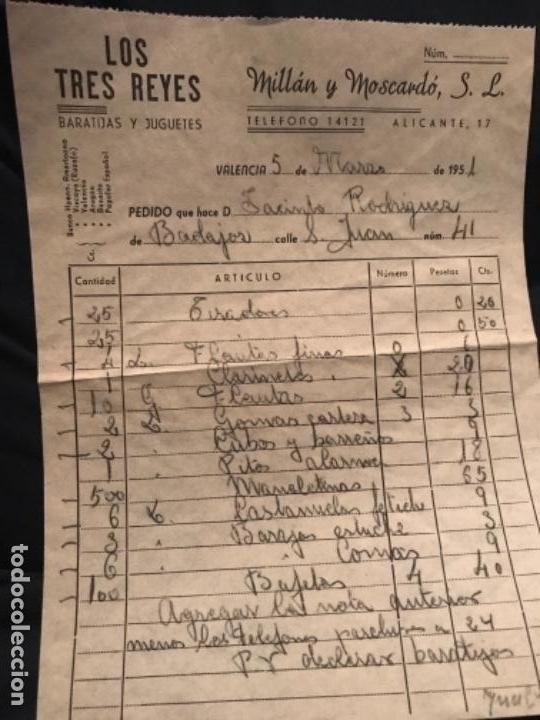 LOS
TRES REYES
BARATIJAS Y JUGUETES
Núm.
Millán y Moscardó, S. L.
TELEFONO 14121 ALICANTE, 17
Banco Hispano Americano
" Vizcaya (Ruzafa)
" Valencia
" Aragón
" Popular Español
Cs.
VALENCIA 5 de Marzo de 1951
PEDIDO que hace D Jacinto Rodriguez
de Badajoz calle S. Juan núm. 41
Cantidad ARTICULO Número Pesetas Cts.
25 Tiradores 0 20
25 0 50
4 Flautas finas 0 6
1 Clarinete 20
10 Flautas 2 16
2 Gomas 3 3
2 Cubos y barreños 9
1 Pitos alarma 18
500 Manoletinas 65
6 Castañuelas 9
3 Barajas estuche 3
6 " Comas 9
100 Bafetas 4 40
Agregar la nota anterior
menos los telefonos a 24
P.V. declarar baratijas
todocoleccion